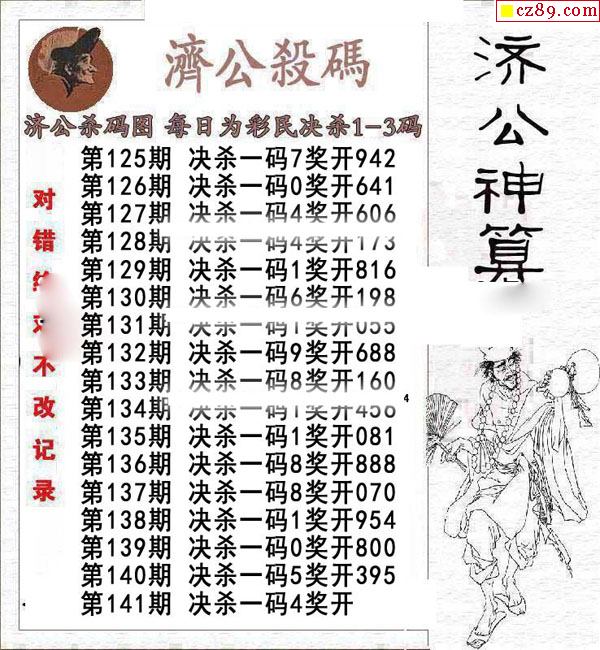 cz89.com
濟公殺碼
济公杀码图 每日为彩民决杀1-3码
第125期 决杀一码7奖开942
第126期 决杀一码0奖开641
第127期 决杀一码4奖开606
第128期 决杀一码4奖开173
第129期 决杀一码1奖开816
第130期 决杀一码6奖开198
第131期 决杀一码1奖开055
第132期 决杀一码9奖开688
第133期 决杀一码8奖开160
第134期 决杀一码1奖开456
第135期 决杀一码1奖开081
第136期 决杀一码8奖开888
第137期 决杀一码8奖开070
第138期 决杀一码1奖开954
第139期 决杀一码0奖开800
第140期 决杀一码5奖开395
第141期 决杀一码4奖开
对错 不改记录
济公神算
4